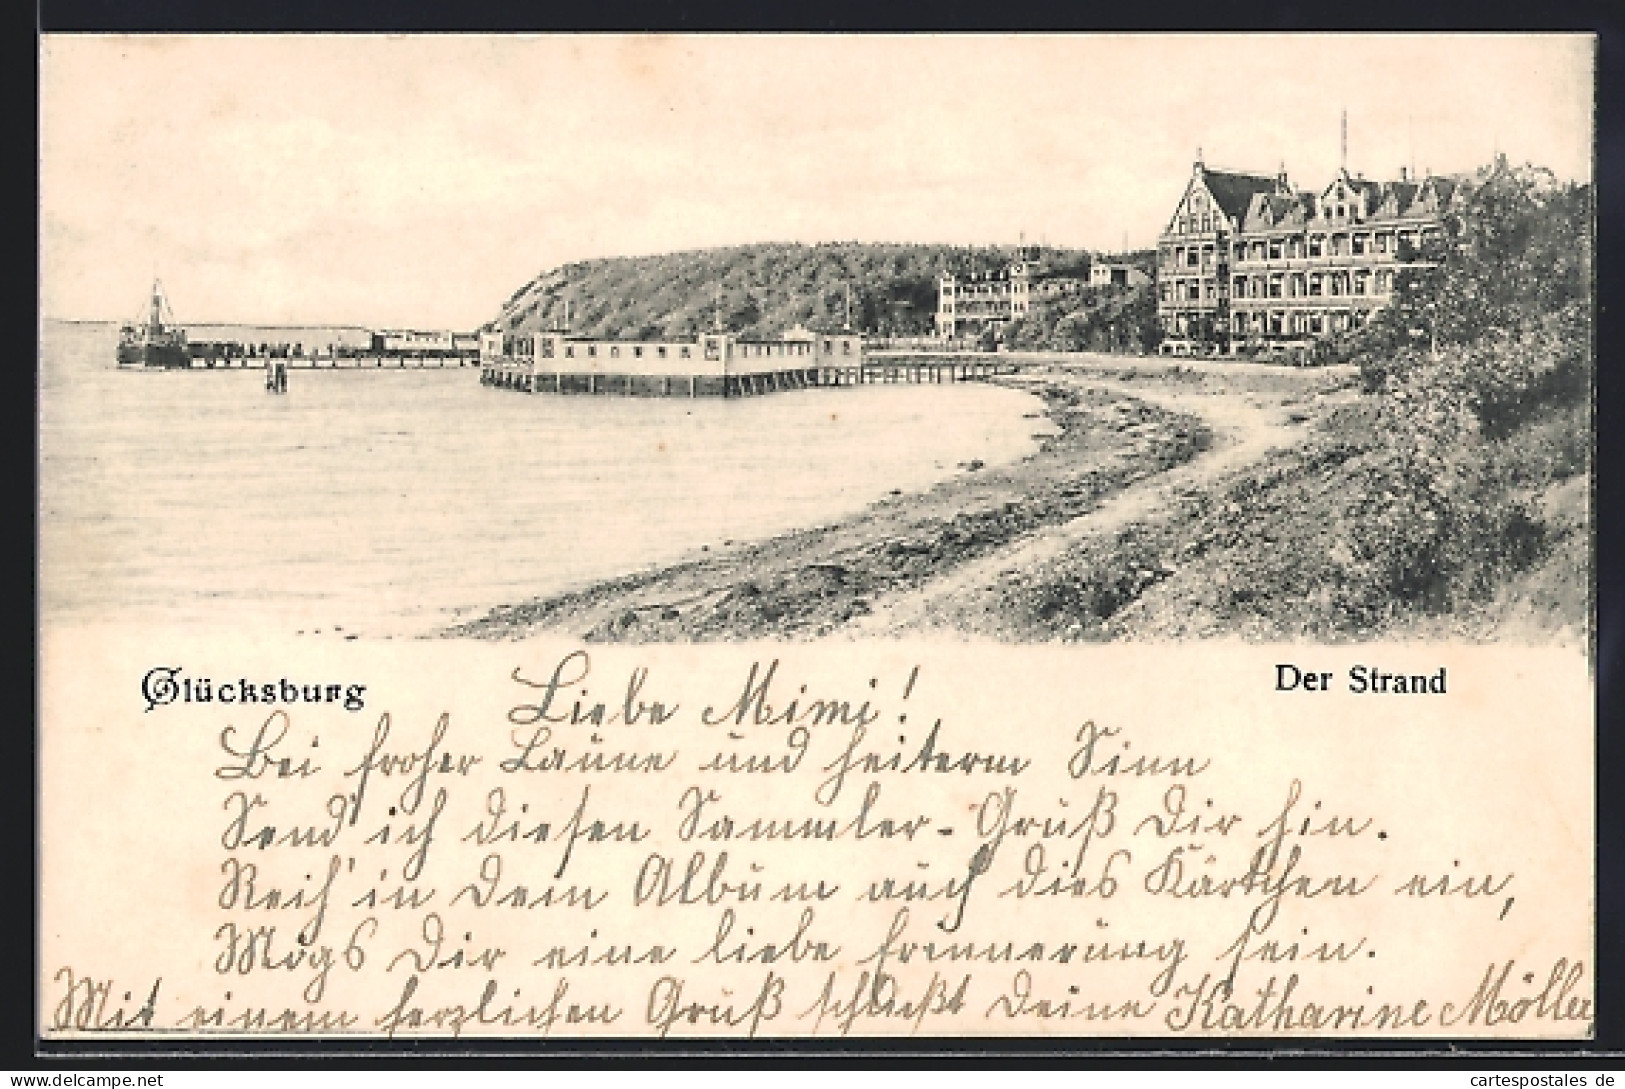 Glücksburg
Der Strand
Liebe Mimi!
Bei froher Laune und heiterm Sinn
Send' ich diesen Sammler-Gruß Dir hin.
Reih' in Dein Album auch dies Kärtchen ein,
Mögs Dir eine liebe Erinnerung sein.
Mit einem herzlichen Gruß schließt Deine Katharine Möller
www.cartespostales.de